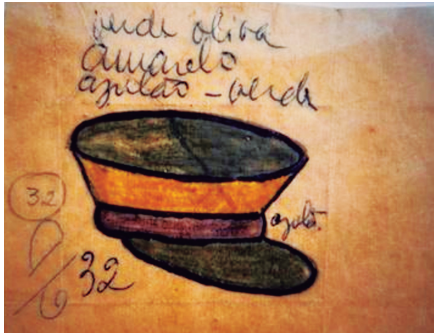 verde oliva
amarelo
azulão - verde
azulã.
32
32